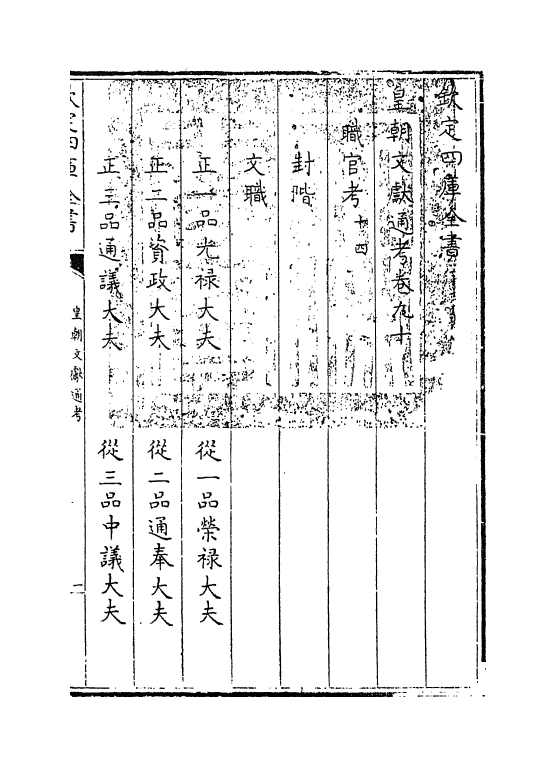 欽定四庫全書
皇朝文獻通考卷九十
職官考十四
封階
文職
正一品光祿大夫 從一品榮祿大夫
正二品資政大夫 從二品通奉大夫
正三品通議大夫 從三品中議大夫
欽定四庫全書
皇朝文獻通考